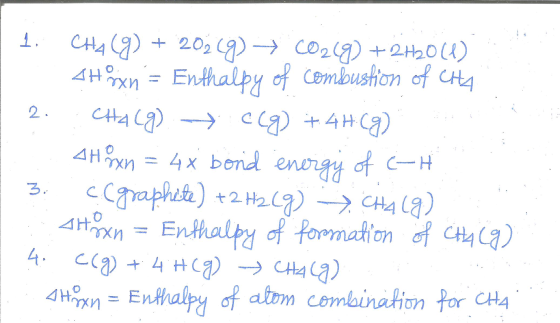 1. CH4(g) + 2O2(g) → CO2(g) + 2H2O(l)
ΔH°rxn = Enthalpy of combustion of CH4
2. CH4(g) → C(g) + 4H(g)
ΔH°rxn = 4x bond energy of C–H
3. C(graphite) + 2H2(g) → CH4(g)
ΔH°rxn = Enthalpy of formation of CH4(g)
4. C(g) + 4H(g) → CH4(g)
ΔH°rxn = Enthalpy of atom combination for CH4